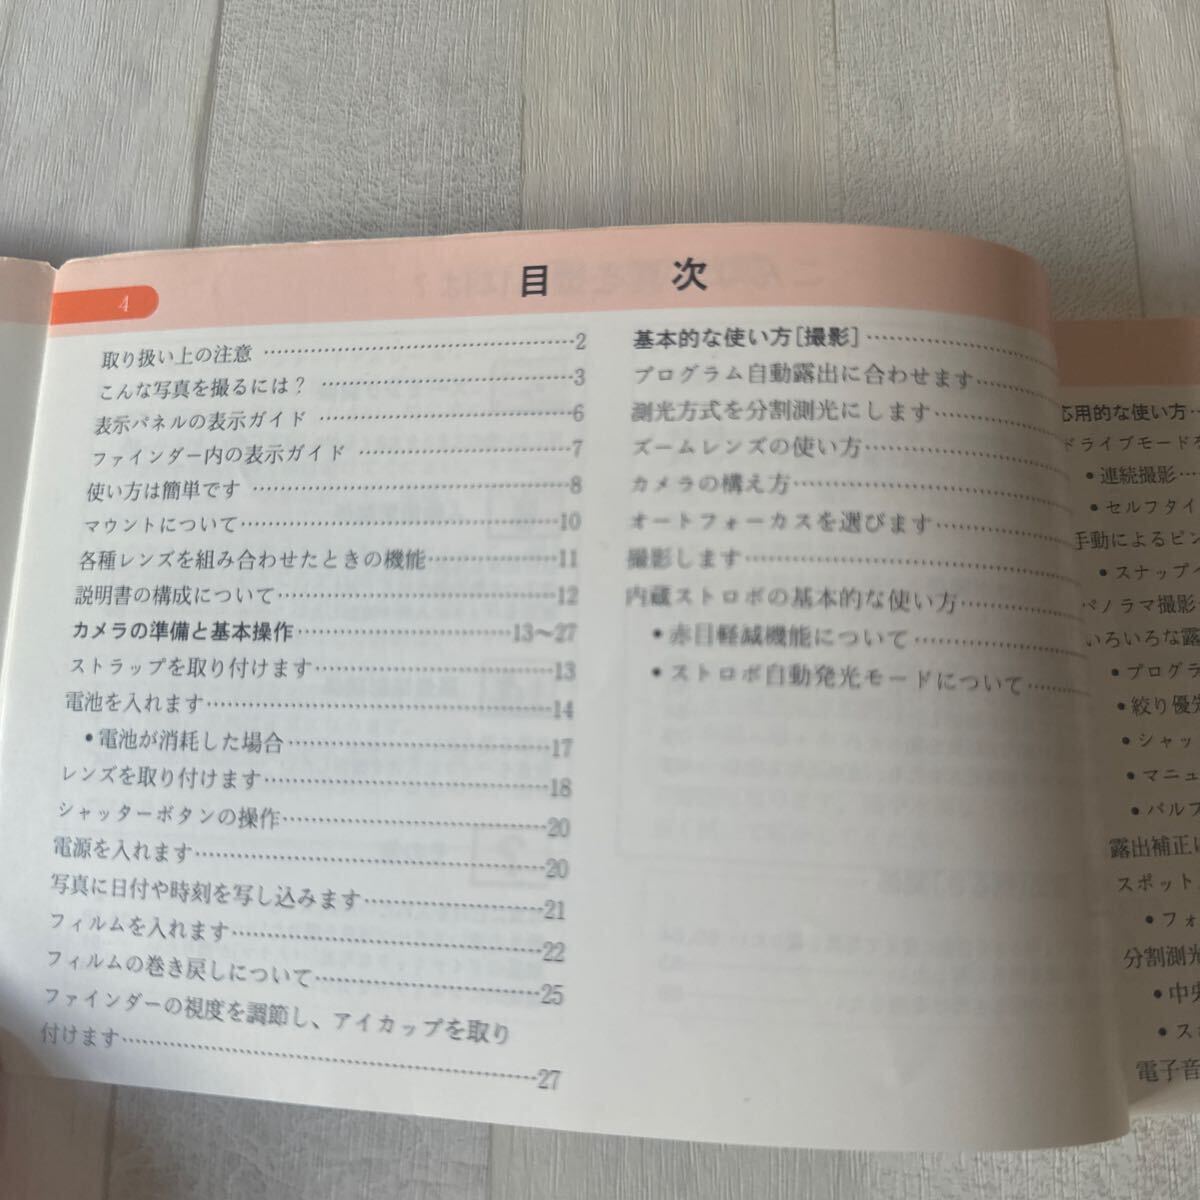 4
目 次
取り扱い上の注意 ……………………………2
こんな写真を撮るには？ ……………………3
表示パネルの表示ガイド ……………………6
ファインダー内の表示ガイド ………………7
使い方は簡単です ……………………………8
マウントについて……………………………10
各種レンズを組み合わせたときの機能………11
説明書の構成について………………………12
カメラの準備と基本操作………………13〜27
ストラップを取り付けます…………………13
電池を入れます………………………………14
•電池が消耗した場合………………………17
レンズを取り付けます………………………18
シャッターボタンの操作……………………20
電源を入れます………………………………20
写真に日付や時刻を写し込みます…………21
フィルムを入れます…………………………22
フィルムの巻き戻しについて………………25
ファインダーの視度を調節し、アイカップを取り
付けます………………………………………27
基本的な使い方[撮影]………………
プログラム自動露出に合わせます…………
測光方式を分割測光にします………………
ズームレンズの使い方………………………
カメラの構え方………………………………
オートフォーカスを選びます………………
撮影します……………………………………
内蔵ストロボの基本的な使い方……………
•赤目軽減機能について……………………
•ストロボ自動発光モードについて………
応用的な使い方…
ドライブモードを
•連続撮影…
•セルフタイ
手動によるピン
•スナップイ
パノラマ撮影
いろいろな露
•プログラ
•絞り優先
•シャッ
•マニュ
•バルブ
露出補正に
スポット
•フォ
分割測光
•中央
•ス
電子音